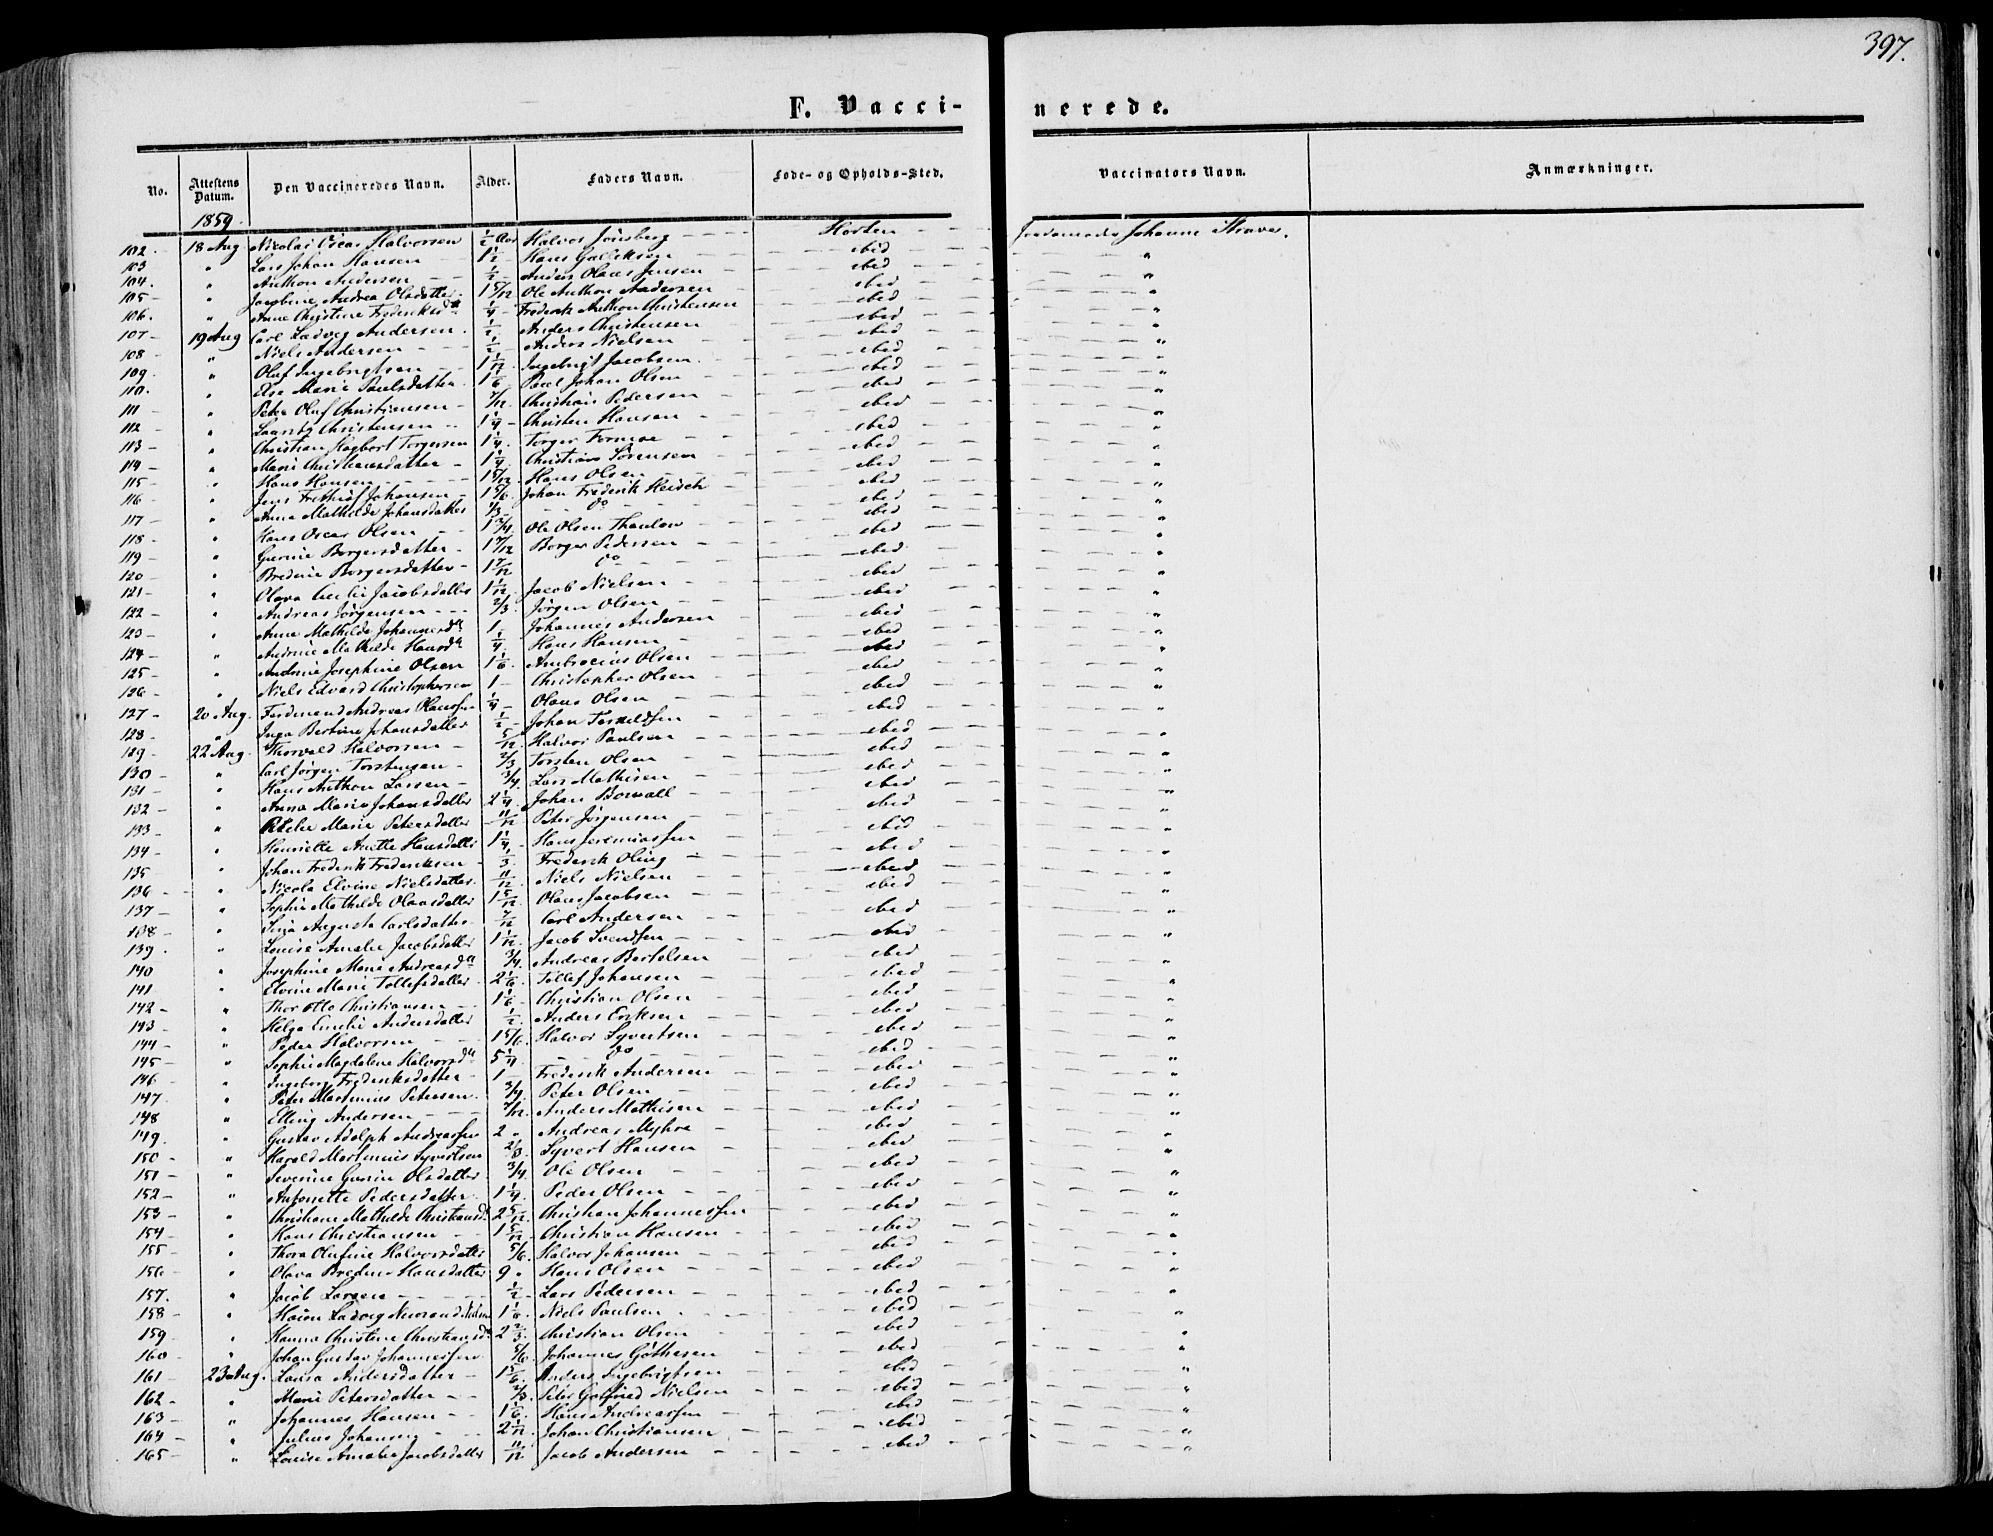 397.
F. Vaccinerede.
No. Attestens Datum. Den Vaccineredes Navn. Alder. Faders Navn. Føde- og Opholds-Sted. Vaccinators Navn. Anmærkninger.
1859.
102. 18 Aug. Nicolai Oscar Halvorsen 1/2 Aar Halvor Horten Johanne
103 " Lars Johan Hansen 1 1/2 Hans Gulliksen ibid "
104. " Anthon Andersen 1/2 Anders Olaus Jensen ibid "
105 - " Jacobine Andrea Olsdatter 1 5/12 Ole Anthon Andersen ibid "
106. " Anne Christine Frederiksd 1/4 Frederik Anthon Christensen ibid "
107 - 19 Aug Carl Ludvig Andersen 1/2 Anders Christensen ibid "
108 - " Niels Andersen 1/2 Anders Nielsen ibid "
109. " Oluf Ingebrigtsen 1 1/12 Ingebrigt Jacobsen ibid "
110. " Else Marie Paulsdatter 1 1/6 Paul Johan Olsen ibid "
111 - " Peter Oluf Christiansen 7/12 Christian Pedersen ibid "
112 - " Christensen 1 1/4 Christen Hansen ibid "
113 - " Christian Hagbart Torgersen 1 1/4 Torger ibid "
114 - " Marie Christiansdatter 1 1/4 Christian Sørensen ibid "
115 - " Hans Hansen 1 5/12 Hans Olsen ibid "
116 - " Jens Frethiof Johansen 1 5/6 Johan Frederik ibid "
117 - " Anne Mathilde Johansdatter 1/3 do ibid "
118 - " Hans Oscar Olsen 1 3/4 Ole Olsen Thaulow ibid "
119 - " Gurine Borgersdatter 1 7/12 Borger Pedersen ibid "
120 - " Bredine Borgersdatter 1 7/12 do ibid "
121 - " Olava Jacobsdatter 1 1/12 Jacob Nielsen ibid "
122 - " Andreas Jørgensen 2/3 Jørgen Olsen ibid "
123 - " Anne Mathilde Johannesd 1 - Johannes Andersen ibid "
124 - " Andrine Mathilde Hansd 1/4 Hans Hansen ibid "
125 - " Andrine Josephine Olsen 1 1/6 Ambrosius Olsen ibid "
126 - " Niels Edvard Christophersen 1 - Christopher Olsen ibid "
127 - 20 Aug. Ferdinand Andreas Olaussen 1/4 Olaus Olsen ibid "
128 - " Inga Bertine Johansdatter 1/2 Johan ibid "
129 - 22 Aug. Thorvald Halvorsen 5/12 Halvor Paulsen ibid "
130 - " Carl Jørgen Torstensen 2/3 Torsten Olsen ibid "
131 - " Hans Anthon Larsen 3/4 Lars Mathisen ibid "
132 - " Anna Marie Johansdatter 2 1/4 Johan ibid "
133 - " Marie Petersdatter 11/12 Peter Jørgensen ibid "
134 - " Henriette Anette Hansdatter 1 1/4 Hans Jeremiassen ibid "
135 " Johan Frederik Frederiksen 1/3 Frederik Olsen ibid "
136 - " Nicola Elvine Nielsdatter 11/12 Niels Nielsen ibid "
137 - " Sophie Mathilde Olausdatter 1 5/12 Olaus Jacobsen ibid "
138 - " Augusta Carlsdatter 7/12 Carl Andersen ibid "
139. " Louise Amalie Jacobsdatter 1 1/12 Jacob Svendsen ibid "
140 " Josephine Marie Andreasd 3/4 Andreas Bertelsen ibid "
141 " Elvine Marie Tollefsdatter 2 1/6 Tollef Johansen ibid "
142 - " Thor Otto Christiansen 1 1/6 Christian Olsen ibid "
143 " Helga Emelie Andersdatter 1/2 Anders Eriksen ibid "
144 - " Peder Halvorsen 1 5/6 Halvor Syvertsen ibid "
145 - " Sophie Magdalene Halvorsd 5 1/4 do ibid "
146 - " Ingeborg Frederiksdatter 1 - Frederik Andersen ibid "
147. " Peter Martinius Petersen 3/4 Peter Olsen ibid "
148 " Elling Andersen 7/12 Anders Mathisen ibid "
149. " Gustav Adolph Andreassen 2 " Andreas Myhre ibid "
150 - " Harald Martinius Syvertsen 2/3 Syvert Hansen ibid "
151 - " Severine Gurine Olsdatter 3/4 Ole Olsen ibid "
152 - " Antonette Pedersdatter 1 1/4 Peder Olsen ibid "
153 - " Christiane Mathilde Christiansd 2 5/12 Christian Johannessen ibid "
154 - " Hans Christiansen 1 5/12 Christian Hansen ibid "
155 - " Thora Olufine Halvorsdatter 5/6 Halvor Johansen ibid "
156 - " Olava Bredine Hansdatter 9 " Hans Olsen ibid "
157. " Jacob Larsen 1/2 Lars Pedersen ibid "
158 - " Ludvig 1 1/6 Niels Paulsen ibid "
159 - " Hanna Christine Christiansd 2 2/3 Christian Olsen ibid "
160 - " Johan Gustav Johannessen 5/6 Johannes ibid "
161 - 23 Aug. Lovisa Andersdatter 1 5/6 Anders Ingebrigtsen ibid "
162 - " Marie Petersdatter 2/3 Peter Nielsen ibid "
163 - " Johannes Hansen 1 1/6 Hans Andreassen ibid "
164 - " Julius Johansen 2 1/12 Johan Christiansen ibid "
165 - " Louise Amalie Jacobsdatter 11/12 Jacob Andersen ibid "